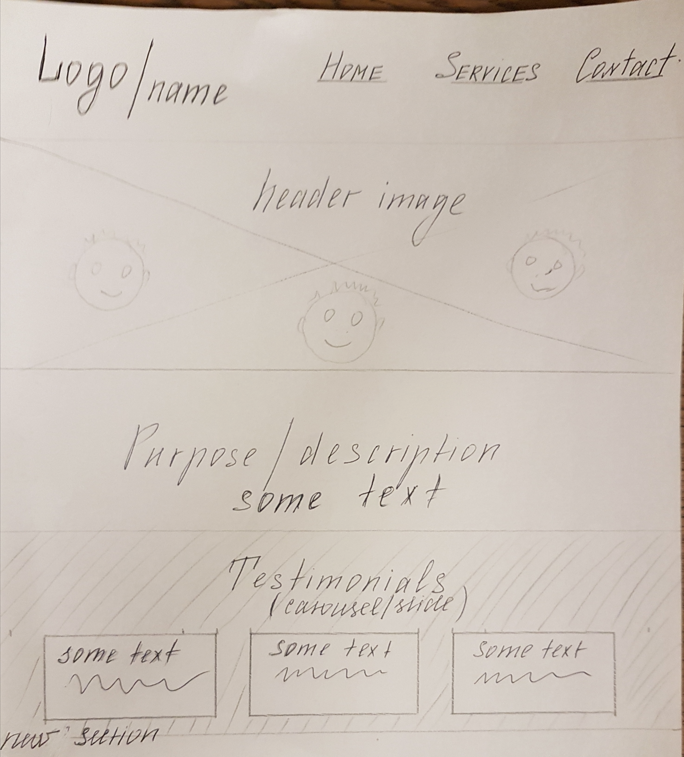 Logo/name
HOME SERVICES Contact
header image
Purpose/description
some text
Testimonials
(carousel/slide)
some text some text some text
new section